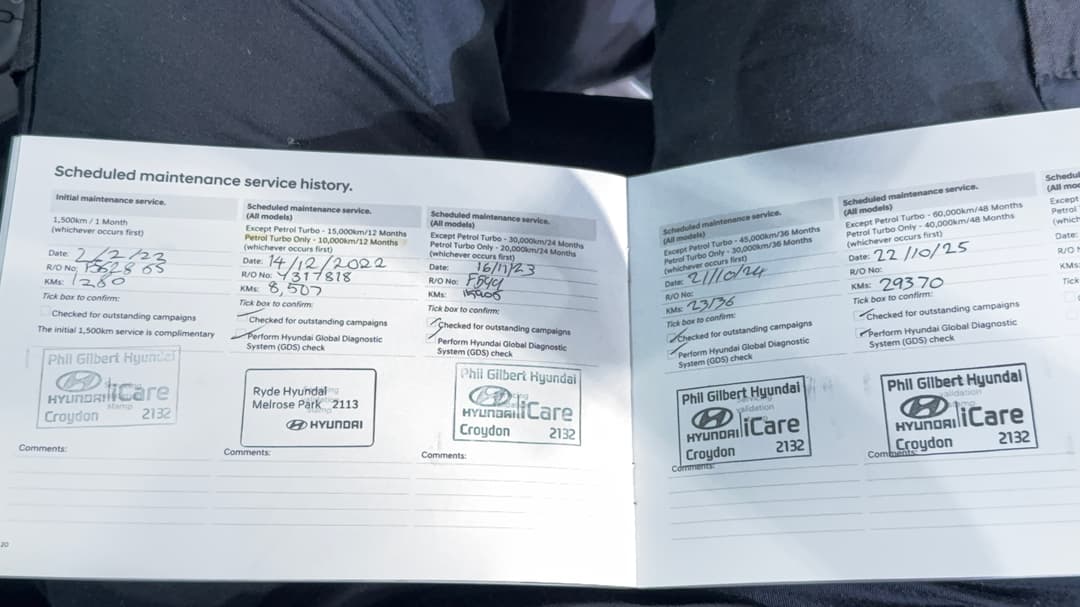 Scheduled maintenance service history.
Initial maintenance service.
1,500km / 1 Month
(whichever occurs first)
Date: 2/2/22
R/O No:
KMs: 1280
Tick box to confirm:
Checked for outstanding campaigns
The initial 1,500km service is complimentary
Phil Gilbert Hyundai
HYUNDAI iCare
stamp
Croydon 2132
Comments:
Scheduled maintenance service.
(All models)
Except Petrol Turbo - 15,000km/12 Months
Petrol Turbo Only - 10,000km/12 Months
(whichever occurs first)
Date: 14/12/2022
R/O No: 4317818
KMs: 8,507
Tick box to confirm:
Checked for outstanding campaigns
Perform Hyundai Global Diagnostic
System (GDS) check
Ryde Hyundai
Melrose Park 2113
HYUNDAI
Comments:
Scheduled maintenance service.
(All models)
Except Petrol Turbo - 30,000km/24 Months
Petrol Turbo Only - 20,000km/24 Months
(whichever occurs first)
Date: 16/11/23
R/O No:
KMs:
Tick box to confirm:
Checked for outstanding campaigns
Perform Hyundai Global Diagnostic
System (GDS) check
Phil Gilbert Hyundai
HYUNDAI iCare
Croydon 2132
Comments:
Scheduled maintenance service.
(All models)
Except Petrol Turbo - 45,000km/36 Months
Petrol Turbo Only - 30,000km/36 Months
(whichever occurs first)
Date: 21/10/24
R/O No:
KMs: 23136
Tick box to confirm:
Checked for outstanding campaigns
Perform Hyundai Global Diagnostic
System (GDS) check
Phil Gilbert Hyundai
validation
HYUNDAI iCare
Croydon 2132
Comments:
Scheduled maintenance service.
(All models)
Except Petrol Turbo - 60,000km/48 Months
Petrol Turbo Only - 40,000km/48 Months
(whichever occurs first)
Date: 22/10/25
R/O No:
KMs: 29370
Tick box to confirm:
Checked for outstanding campaigns
Perform Hyundai Global Diagnostic
System (GDS) check
Phil Gilbert Hyundai
validation
HYUNDAI iCare
Croydon 2132
Comments:
Except
Petrol
Date:
R/O
KMs:
Tick
20